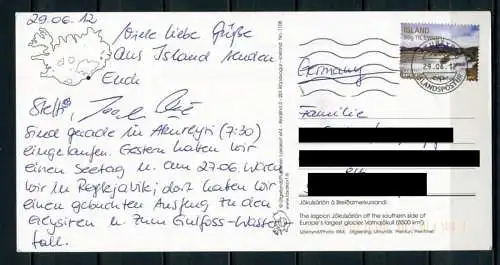 29.06.12
Viele liebe Grüße
aus Island senden
Euch
Steffi,
Sind gerade in Akureyri (7:30)
eingelaufen. Gestern haben wir
einen Seetag u. am 27.06. waren
wir in Reykjavik; dort haben wir
einen gebuchten Ausflug zu den
Geysiren u. zum Gulfoss-Wasser-
fall.
ÍSLAND
29.06.12
ÍSLANDSPÓSTUR
Germany
Familie
Jökulsárlón á Breiðamerkursandi.
The lagoon Jökulsárlón off the southern side of
Europe's largest glacier, Vatnajökull (8300 km²).